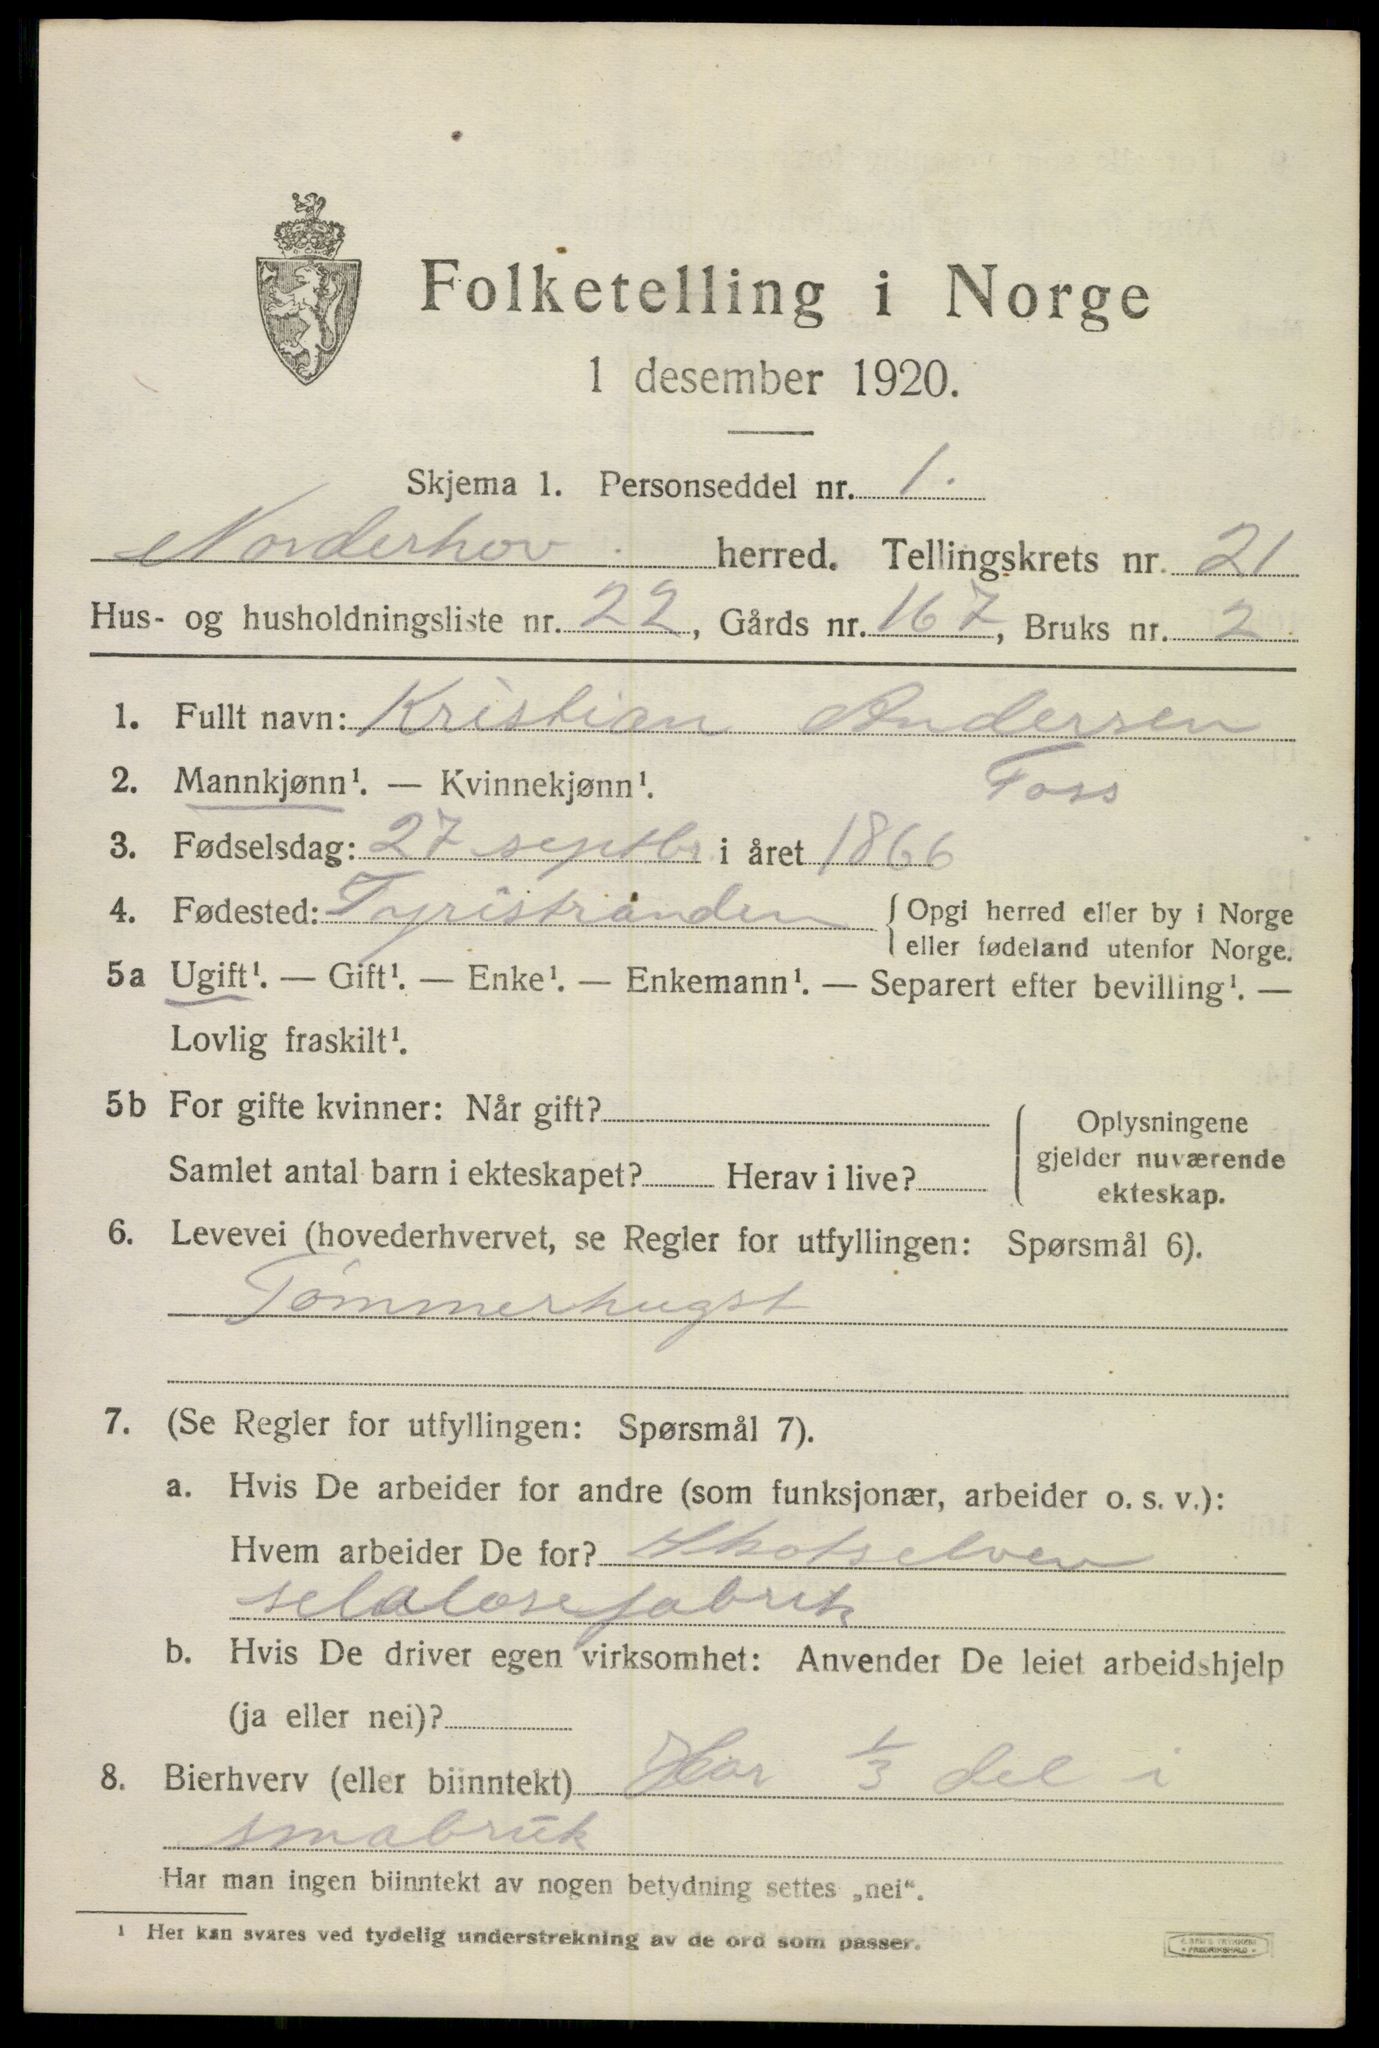 Folketelling i Norge
1 desember 1920.
Skjema 1. Personseddel nr. 1.
Norderhov herred. Tellingskrets nr. 21
Hus- og husholdningsliste nr. 22, Gårds nr. 167, Bruks nr. 2
1. Fullt navn: Kristian Andersen
Foss
2. Mannkjønn¹. — Kvinnekjønn¹.
3. Fødselsdag: 27 septbr. i året 1866
4. Fødested: Tyristranden { Opgi herred eller by i Norge
eller fødeland utenfor Norge.
5a Ugift¹. — Gift¹. — Enke¹. — Enkemann¹. — Separert efter bevilling¹. —
Lovlig fraskilt¹.
5b For gifte kvinner: Når gift?
Samlet antal barn i ekteskapet? Herav i live?
Oplysningene
gjelder nuværende
ekteskap.
6. Levevei (hovederhvervet, se Regler for utfyllingen: Spørsmål 6).
Tømmerhugst
7. (Se Regler for utfyllingen: Spørsmål 7).
a. Hvis De arbeider for andre (som funksjonær, arbeider o. s. v.):
Hvem arbeider De for? Skotselven
selolosefabrik
b. Hvis De driver egen virksomhet: Anvender De leiet arbeidshjelp
(ja eller nei)?
8. Bierhverv (eller biinntekt) Har 1/3 del i
smabruk
Har man ingen biinntekt av nogen betydning settes „nei“.
¹ Her kan svares ved tydelig understrekning av de ord som passer.